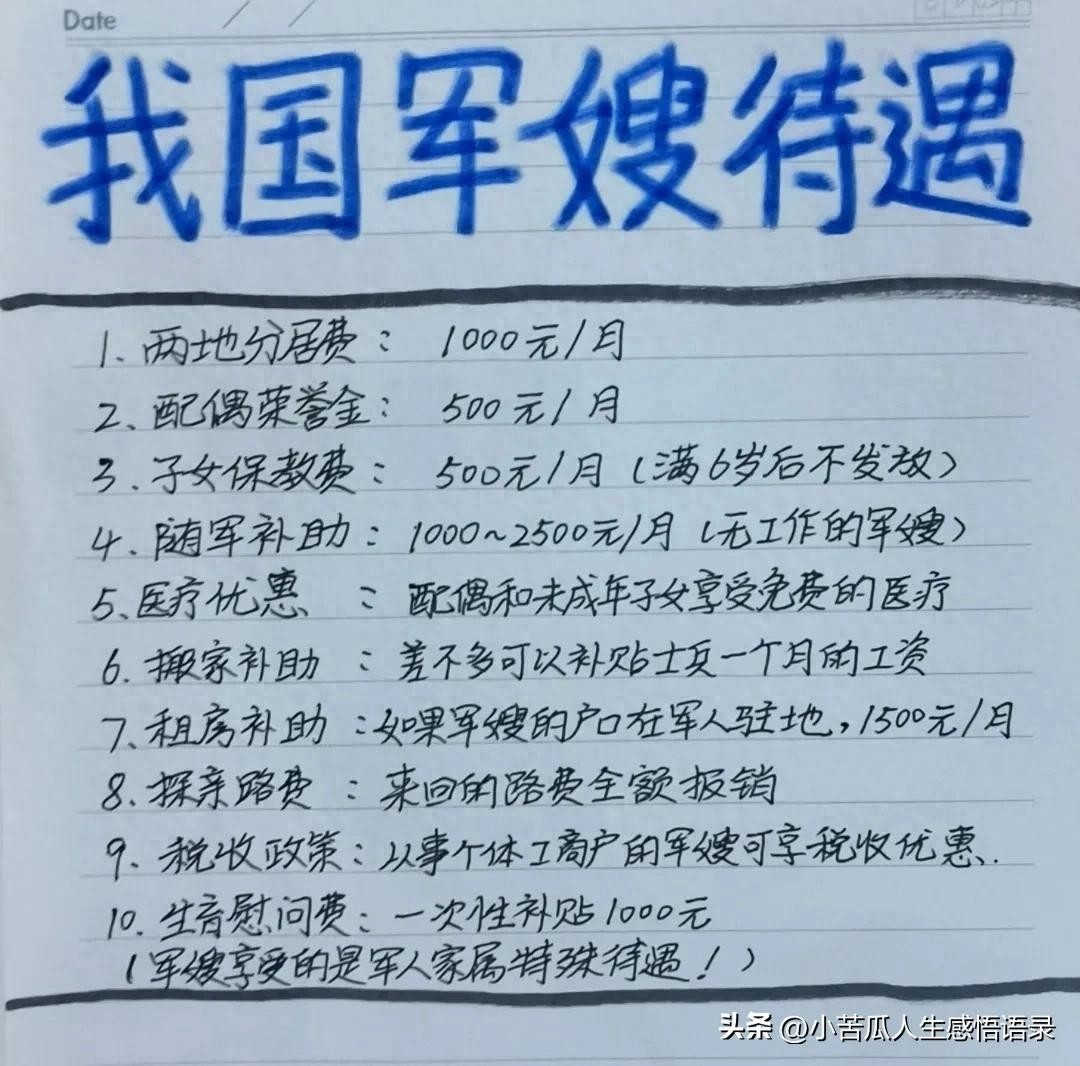 Date / /
我国军嫂待遇
1、两地分居费：1000元/月
2、配偶荣誉金：500元/月
3、子女保教费：500元/月（满6岁后不发放）
4、随军补助：1000~2500元/月（无工作的军嫂）
5、医疗优惠：配偶和未成年子女享受免费的医疗
6、搬家补助：差不多可以补贴士兵一个月的工资
7、租房补助：如果军嫂的户口在军人驻地，1500元/月
8、探亲路费：来回的路费全额报销
9、税收政策：从事个体工商户的军嫂可享税收优惠.
10、生育慰问费：一次性补贴1000元
（军嫂享受的是军人家属特殊待遇！）
头条 @小苦瓜人生感悟语录